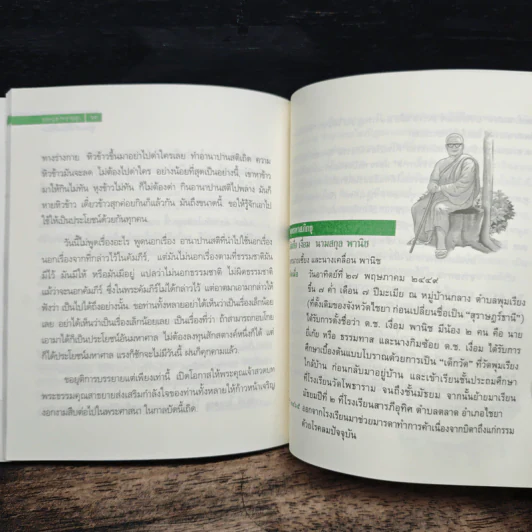 ทางร่างกาย หิวข้าวขึ้นมาอย่าไปด่าใครเลย ทำอานาปานสติเถิด ความ
หิวข้าวมันจะลด ไม่ต้องไปด่าใคร อย่างน้อยที่สุดเป็นอย่างนี้ เขาหาข้าว
มาให้กินไม่ทัน หุงข้าวไม่ทัน ก็ไม่ต้องด่า กินอานาปานสติไปพลาง มันก็
หายหิวข้าว เดี๋ยวข้าวสุกค่อยกินก็แล้วกัน มันถึงขนาดนี้ ขอให้รู้จักเอาไป
ใช้ให้เป็นประโยชน์ด้วยกันทุกคน
วันนี้ไม่พูดเรื่องอะไร พูดนอกเรื่อง อานาปานสติที่นำไปใช้นอกเรื่อง
นอกเรื่องจากที่กล่าวไว้ในคัมภีร์ แต่มันไม่นอกเรื่องตามที่ธรรมชาติมัน
มีไว้ มันมีให้ หรือมันมีอยู่ แปลว่าไม่นอกธรรมชาติ ไม่ผิดธรรมชาติ
แม้ว่าจะนอกคัมภีร์ ซึ่งในพระคัมภีร์ไม่ได้กล่าวไว้ แต่อาตมาเอามากล่าวให้
ฟังว่า เป็นไปได้ถึงอย่างนั้น ขอท่านทั้งหลายอย่าได้เห็นว่าเป็นเรื่องเล็กน้อย
เลย อย่าได้เห็นว่าเป็นเรื่องเล็กน้อยเลย เป็นเรื่องที่ว่า ถ้าสามารถปลดโยก
เอามาได้ก็เป็นประโยชน์อันมหาศาล ไม่ต้องลงทุนสักสตางค์หนึ่งก็ได้ แต่ก็
ก็ได้ประโยชน์มหาศาล แรงก็ชักจะไม่มีวันนี้ ฝนก็คุกคามแล้ว
ขอยุติการบรรยายแต่เพียงเท่านี้ เปิดโอกาสให้พระคุณเจ้าสวดบท
พระธรรมคุณสาธยายส่งเสริมกำลังใจของท่านทั้งหลาย ให้ก้าวหน้าเจริญ
งอกงามสืบต่อไปในพระศาสนา ในกาลบัดนี้เถิด
เงื่อม นามสกุล พานิช
และนางเคลื่อน พานิช
วันอาทิตย์ที่ ๒๗ พฤษภาคม ๒๔๔๙
ขึ้น ๗ ค่ำ เดือน ๗ ปีมะเมีย ณ หมู่บ้านกลาง ตำบลพุมเรียง
(ที่ตั้งเดิมของจังหวัดไชยา ก่อนเปลี่ยนชื่อเป็น "สุราษฎร์ธานี")
ได้รับการตั้งชื่อว่า ด.ช. เงื่อม พานิช มีน้อง ๒ คน คือ นาย
ยี่เกย หรือ ธรรมทาส และนางกิมซ้อย ด.ช. เงื่อม ได้รับการ
ศึกษาเบื้องต้นแบบโบราณด้วยการเป็น "เด็กวัด" ที่วัดพุมเรียง
ใกล้บ้าน ก่อนกลับมาอยู่บ้าน และเข้าเรียนชั้นประถมศึกษา
ที่โรงเรียนวัดโพธาราม จนถึงชั้นมัธยม จากนั้นย้ายมาเรียน
มัธยมปีที่ ๒ ที่โรงเรียนสารภีอุทิศ ตำบลตลาด อำเภอไชยา
ออกจากโรงเรียนมาช่วยมารดาทำการค้าเนื่องจากบิดาถึงแก่กรรม
ด้วยโรคลมปัจจุบัน